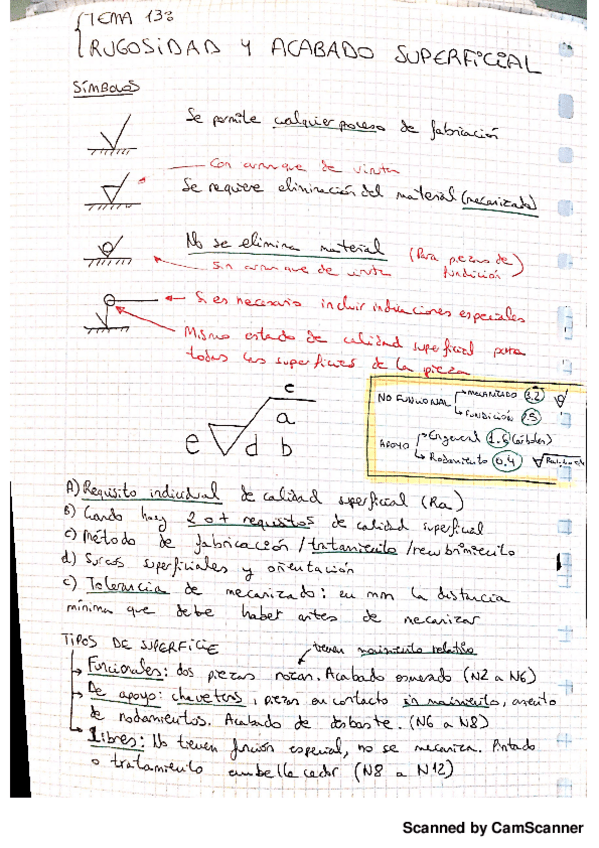 TEMA 13:
RUGOSIDAD Y ACABADO SUPERFICIAL
SÍMBOLOS
Se permite cualquier proceso de fabricación
Con arranque de viruta
Se requiere eliminación del material (mecanizado)
No se elimina material (Para piezas de fundición)
Sin arranque de viruta
Si es necesario incluir indicaciones especiales
Mismo estado de calidad superficial para
todas las superficies de la pieza
c
a
e d b
NO FUNCIONAL MECANIZADO 3.2
FUNDICIÓN 25
APOYO En general 1.6 (árboles)
Rodamiento 0.4
A) Requisito individual de calidad superficial (Ra)
B) Cuando hay 2 o + requisitos de calidad superficial
c) Método de fabricación / tratamiento / recubrimiento
d) Surcos superficiales y orientación
e) Tolerancia de mecanizado: en mm la distancia
mínima que debe haber antes de mecanizar
TIPOS DE SUPERFICIE
tienen movimiento relativo
Funcionales: dos piezas rozan. Acabado esmerado (N2 a N6)
De apoyo: chaveteros, piezas en contacto sin movimiento, asiento
de rodamientos. Acabado de desbaste. (N6 a N8)
Libres: No tienen función especial, no se mecaniza. Pintado
o tratamiento embellecedor (N8 a N12)
Scanned by CamScanner